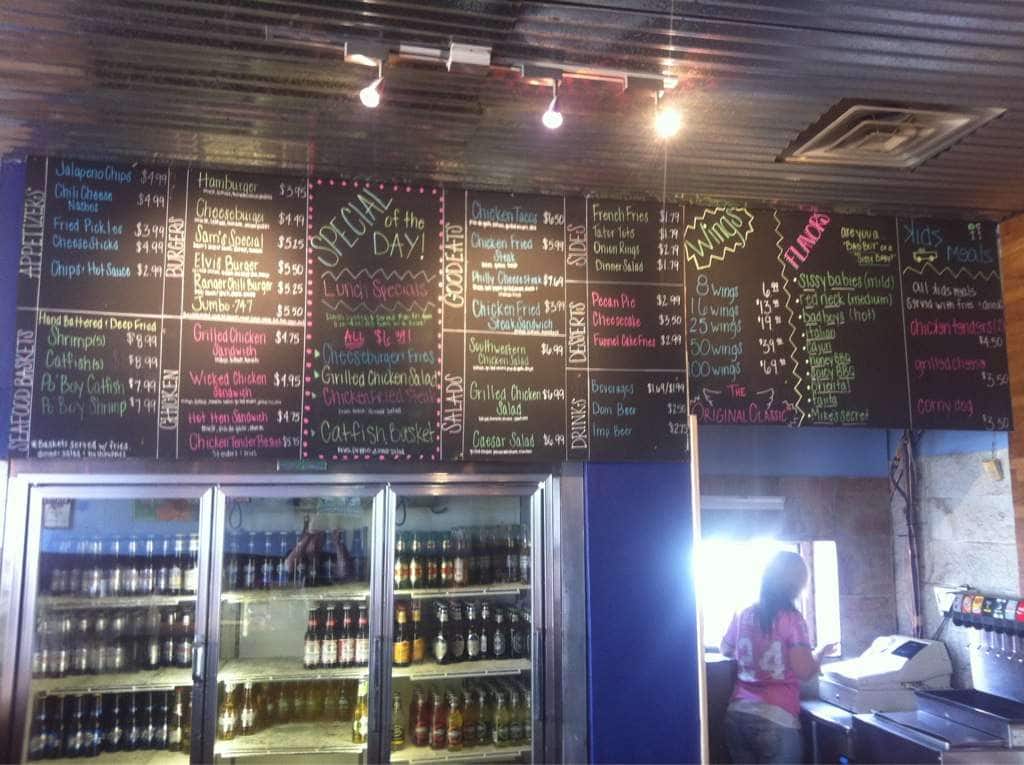 APPETIZERS
Jalapeno Chips $4.99
Chili Cheese Nachos $4.99
Fried Pickles $3.99
Cheese Sticks $4.99
Chips & Hot Sauce $2.99
SEAFOOD BASKETS
Hand Battered & Deep Fried
Shrimp(5) $8.99
Catfish(2) $8.99
Po Boy Catfish $7.99
Po Boy Shrimp $7.99
Baskets served w/ fries,
BURGERS
Hamburger $3.95
Cheeseburger $4.49
Sam's Special $5.25
Elvis Burger $5.50
Ranger Chili Burger $5.25
Jumbo 747 $5.50
CHICKEN
Grilled Chicken Sandwich $4.75
Wicked Chicken Sandwich $4.95
Hot Hen Sandwich $4.75
Chicken Tender Basket
SPECIAL
of the
DAY!
Lunch Specials
ALL
Cheeseburger Fries
Grilled Chicken Salad
Chicken Fried Steak
Catfish Basket
GOOD EATS
Chicken Tacos $6.50
Chicken Fried Steak $5.99
Philly Cheesesteak $7.69
Chicken Fried Steak Sandwich
SALADS
Southwestern Chicken Salad $6.99
Grilled Chicken Salad $6.99
Caesar Salad $6.99
SIDES
French Fries $1.79
Tator Tots $1.79
Onion Rings $2.79
Dinner Salad $1.79
DESSERTS
Pecan Pie $2.99
Cheesecake $3.50
Funnel Cake Fries $2.99
DRINKS
Beverages $1.69/$1.99
Dom Beer $2.50
Imp Beer $2.75
Wings
8 wings
16 wings
25 wings
50 wings
100 wings
THE
ORIGINAL Classic
FLAVORS
are you a
"BAD BOY" or a
"Sissy Baby"
sissy babies (mild)
red neck (medium)
bad boys (hot)
italian
cajun
Oriental
Fajita
Mike's secret
Kids
Meals
all kids meals
served with fries & drink
chicken tenders(2)
$4.50
grilled cheese
$3.50
corny dog
$3.50
24